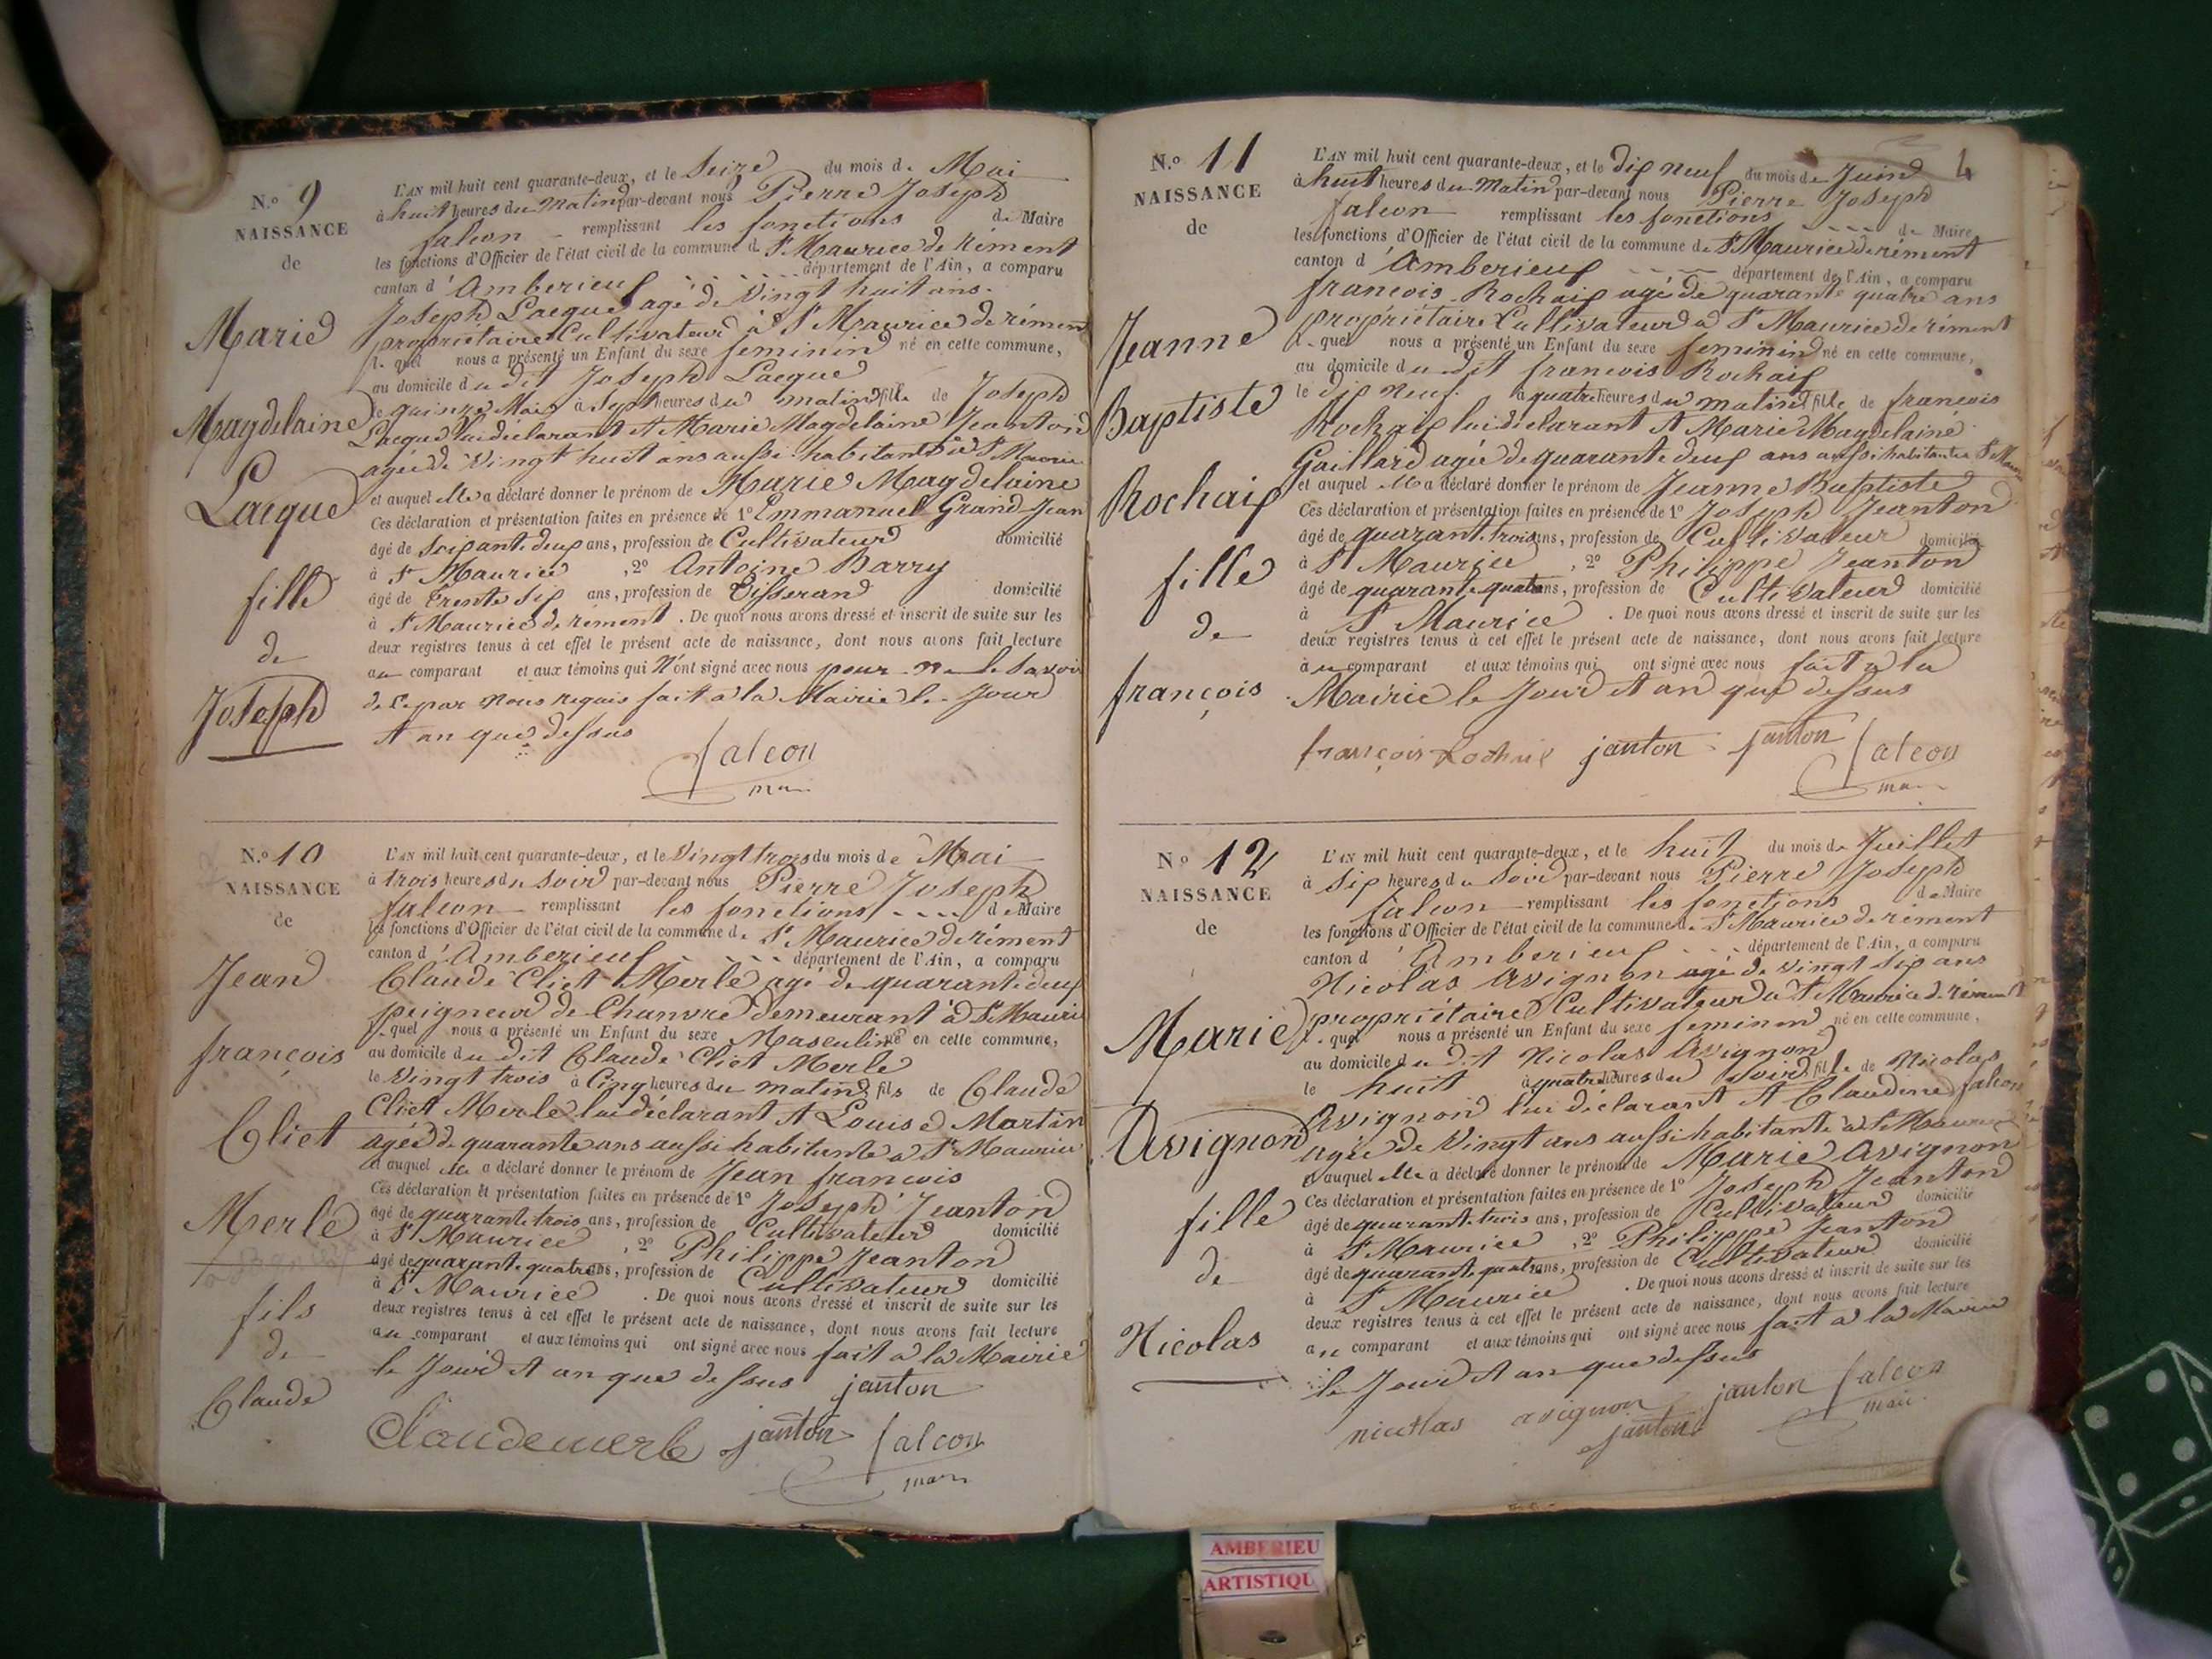 N.º 9
NAISSANCE
de
Marie
Magdelaine
Lacque
fille
de
Joseph
L'AN mil huit cent quarante-deux, et le Seize du mois de Mai
à huit heures du Matin par-devant nous Pierre Joseph
falcon remplissant les fonctions de Maire
les fonctions d'Officier de l'état civil de la commune de St Maurice de rément
canton d'Amberieux département de l'Ain, a comparu
Joseph Lacque agé de Vingt huit ans.
propriétaire Cultivateur à St Maurice de rémen
lequel nous a présenté un Enfant du sexe feminin né en cette commune,
au domicile du dit Joseph Lacque
le quinze Mai à Sept heures du matin fille de Joseph
Lacque lui déclarant et Marie Magdelaine Jeanton
agée de Vingt huit ans aussi habitante à St Mauri
et auquel elle a déclaré donner le prénom de Marie Magdelaine
Ces déclaration et présentation faites en présence de 1º Emmanuel Grand-Jean
âgé de Soixante deux ans, profession de Cultivateur domicilié
à St Maurice , 2º Antoine Barry
âgé de trente six ans, profession de tisserand domicilié
à St Maurice de rément . De quoi nous avons dressé et inscrit de suite sur les
deux registres tenus à cet effet le présent acte de naissance, dont nous avons fait lecture
au comparant et aux témoins qui N'ont signé avec nous pour ne le Savoir
de ce par Nous requis fait à la Mairie le Jour
et an que dessus
falcon
maire
N.º 10
NAISSANCE
de
Jean
françois
Cliet
Merle
fils
de
Claude
L'AN mil huit cent quarante-deux, et le Vingt trois du mois de Mai
à trois heures du Soir par-devant nous Pierre Joseph
falcon remplissant les fonctions de Maire
les fonctions d'Officier de l'état civil de la commune de St Maurice de rément
canton d'Amberieux département de l'Ain, a comparu
Claude Cliet Merle agé de quarante deux
peigneur de Chanvre demeurant à St Mauri
lequel nous a présenté un Enfant du sexe Masculin né en cette commune,
au domicile du dit Claude Cliet Merle
le Vingt trois à Cinq heures du matin fils de Claude
Cliet Merle lui déclarant et Louise Martin
agée de quarante ans aussi habitante a St Maurice
et auquel elle a déclaré donner le prénom de Jean francois
Ces déclaration et présentation faites en présence de 1º Joseph Jeanton
âgé de quarante trois ans, profession de Cultivateur domicilié
à St Maurice , 2º Philippe Jeanton
âgé de quarante quatre ans, profession de Cultivateur domicilié
à St Maurice . De quoi nous avons dressé et inscrit de suite sur les
deux registres tenus à cet effet le présent acte de naissance, dont nous avons fait lecture
au comparant et aux témoins qui ont signé avec nous fait à la Mairie
le Jour et an que dessus janton
Claudemerle janton falcon
maire
4
N.º 11
NAISSANCE
de
Jeanne
Baptiste
Rochaix
fille
de
françois
L'AN mil huit cent quarante-deux, et le dix neuf du mois de Juin
à huit heures du Matin par-devant nous Pierre Joseph
falcon remplissant les fonctions de Maire
les fonctions d'Officier de l'état civil de la commune de St Maurice de rément
canton d'Amberieux département de l'Ain, a comparu
francois Rochaix agé de quarante quatre ans
propriétaire Cultivateur a St Maurice de rément
lequel nous a présenté un Enfant du sexe feminin né en cette commune,
au domicile du dit francois Rochaix
le dix neuf à quatre heures du matin fille de francois
Rochaix lui déclarant et Marie Magdelaine
Gaillard agée de quarante deux ans aussi habitante a St Mau
et auquel elle a déclaré donner le prénom de Jeanne Baptiste
Ces déclaration et présentation faites en présence de 1º Joseph Jeanton
âgé de quarante trois ans, profession de Cultivateur domicilié
à St Maurice , 2º Philippe Jeanton
âgé de quarante quatre ans, profession de Cultivateur domicilié
à St Maurice . De quoi nous avons dressé et inscrit de suite sur les
deux registres tenus à cet effet le présent acte de naissance, dont nous avons fait lecture
au comparant et aux témoins qui ont signé avec nous fait à la
Mairie le Jour et an que dessus
françois Rochaix janton janton falcon
maire
Nº 12
NAISSANCE
de
Marie
Avignon
fille
de
Nicolas
L'AN mil huit cent quarante-deux, et le huit du mois de Juillet
à Six heures du Soir par-devant nous Pierre Joseph
falcon remplissant les fonctions de Maire
les fonctions d'Officier de l'état civil de la commune de St Maurice de rément
canton d'Amberieux département de l'Ain, a comparu
Nicolas Avignon agé de vingt six ans
propriétaire Cultivateur a St Maurice de rément
lequel nous a présenté un Enfant du sexe feminin né en cette commune,
au domicile du dit Nicolas Avignon
le huit à quatre heures du soir fille de Nicolas
Avignon lui déclarant et Claudine falcon
agée de Vingt ans aussi habitante à St Maurice
et auquel elle a déclaré donner le prénom de Marie Avignon
Ces déclaration et présentation faites en présence de 1º Joseph Jeanton
âgé de quarante trois ans, profession de Cultivateur domicilié
à St Maurice , 2º Philippe Jeanton
âgé de quarante quatre ans, profession de Cultivateur domicilié
à St Maurice . De quoi nous avons dressé et inscrit de suite sur les
deux registres tenus à cet effet le présent acte de naissance, dont nous avons fait lecture
au comparant et aux témoins qui ont signé avec nous fait a la Mairie
le Jour et an que dessus
nicolas avignon janton falcon
janton maire
AMBERIEU
ARTISTIQU